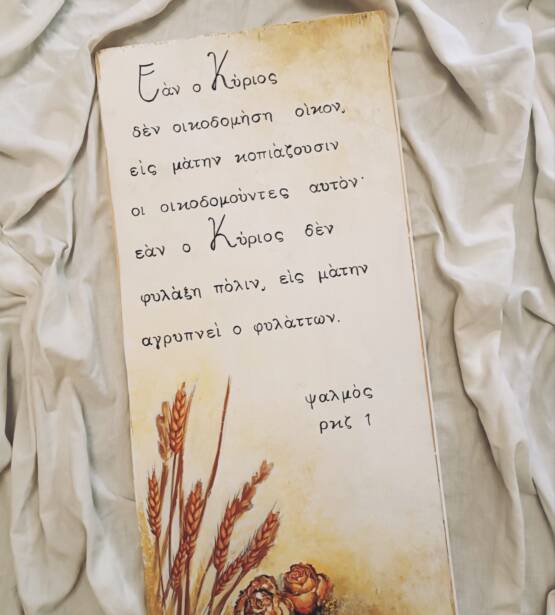 Εὰν ο Κύριος
δὲν οικοδομήση οίκον,
εἰς μὰτην κοπιὰζουσιν
οι οικοδομούντες αυτὸν·
εὰν ο Κύριος δὲν
φυλὰξη πὸλιν, εἰς μὰτην
αγρυπνεί ο φυλὰττων.
ψαλμὸς
ρκζ 1